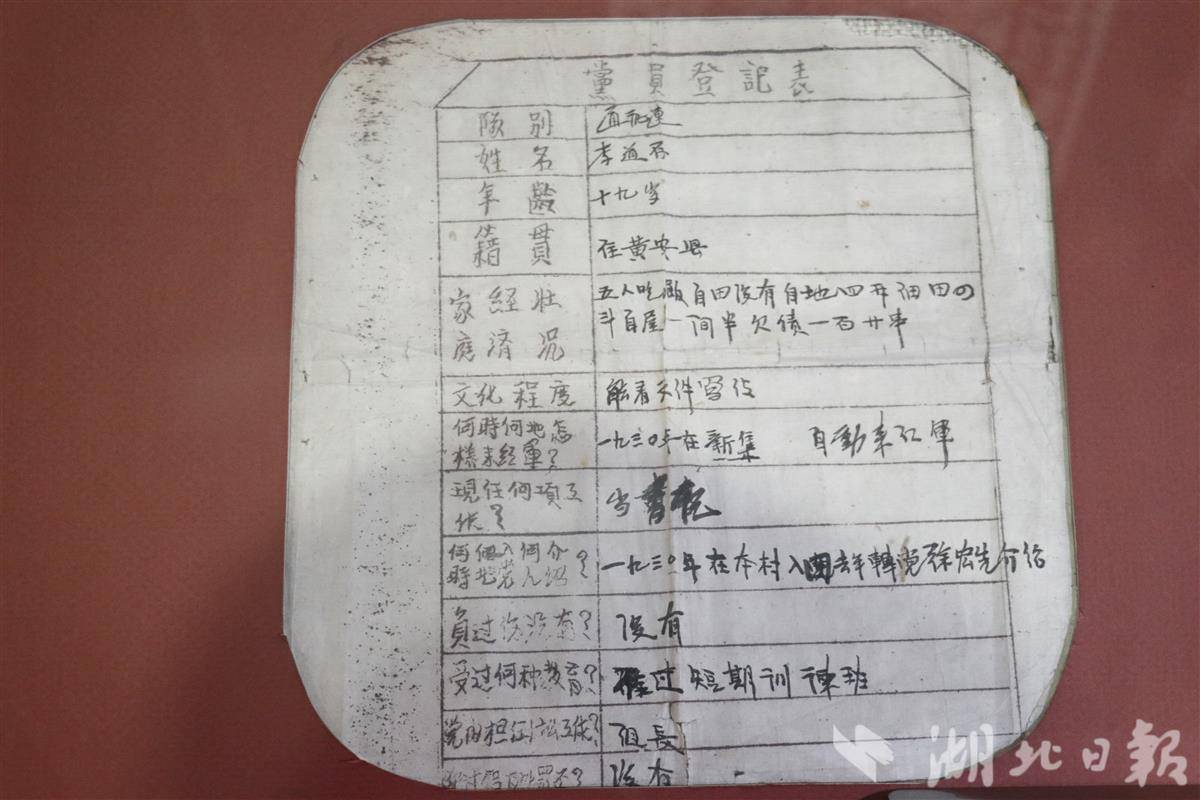 黨員登記表
隊別
姓名 李
年齡 十九岁
籍貫 住黄安县
家庭經济壮况 五人吃飯自田没有自地 田
斗自屋一间半欠债一百廿串
文化程度 能看文件写信
何時何地怎 一九三〇年在新集 自動来红軍
樣来紅軍?
現任何項工 当書記
作?
何時何地入党何人介绍? 一九三〇年在本村入团去年轉党徐宏先介绍
負过伤没有? 没有
受过何种教育? 过短期训練班
党内担任 工作? 组長
没有
湖北日報